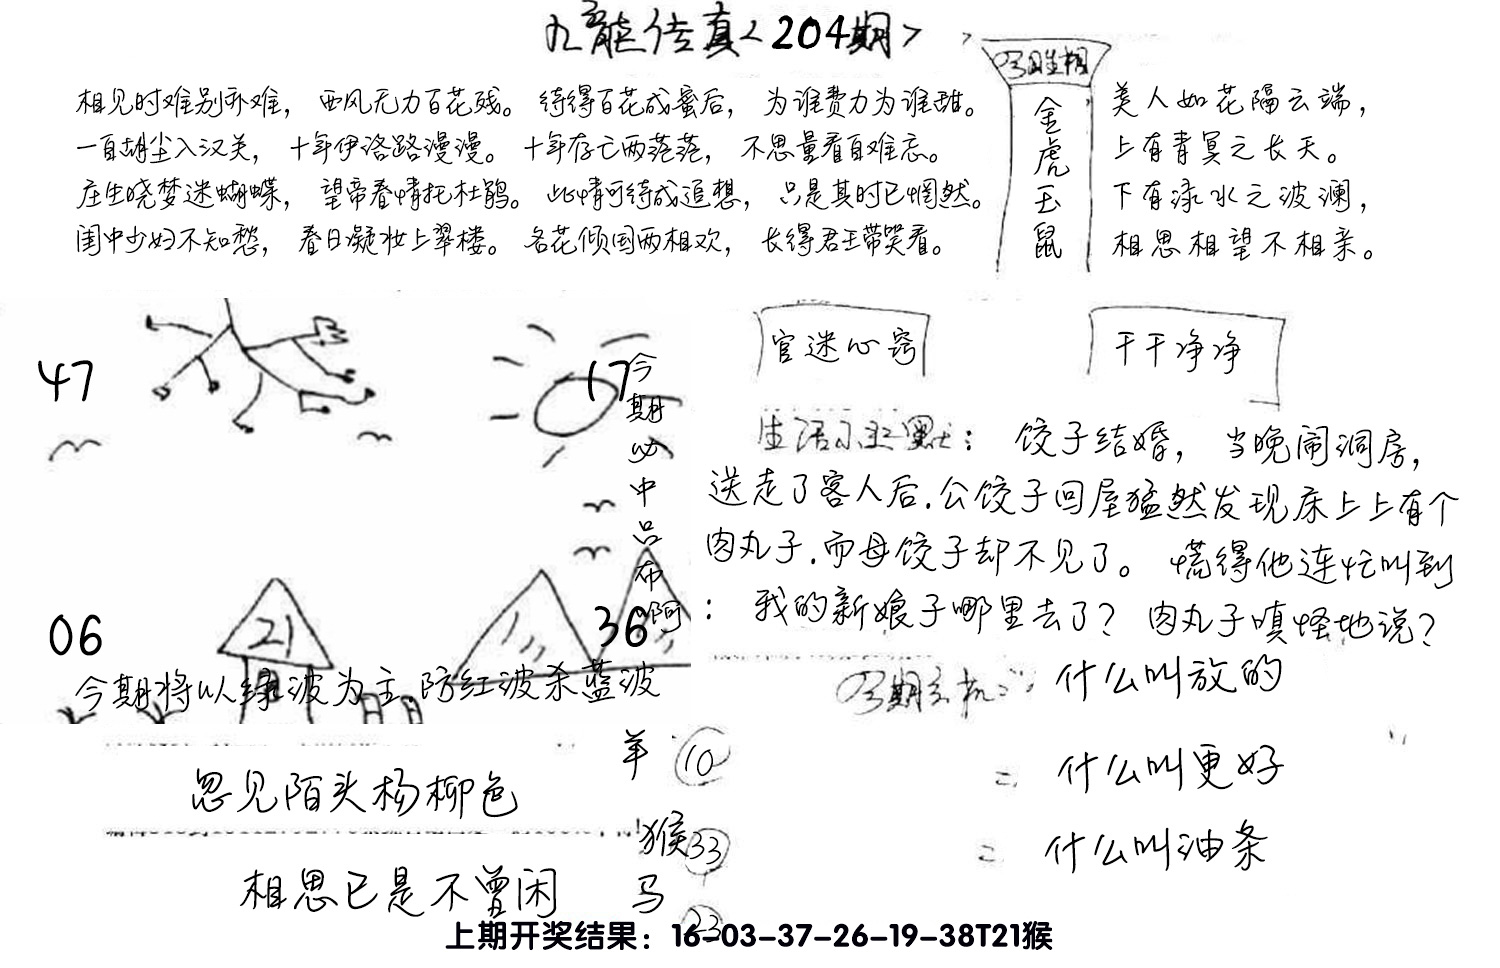 九龍传真<204期>
相见时难别亦难，西风无力百花残。待得百花成蜜后，为谁费力为谁甜。
一自胡尘入汉关，十年伊洛路漫漫。十年存亡两茫茫，不思量看自难忘。
庄生晓梦迷蝴蝶，望帝春情托杜鹃。此情可待成追想，只是其时已惘然。
闺中少妇不知愁，春日凝妆上翠楼。名花倾国两相欢，长得君王带笑看。
金虎玉鼠
美人如花隔云端，
上有青冥之长天。
下有渌水之波澜，
相思相望不相亲。
47
17
今期必中吕布啊
06
21
36
今期将以绿波为主防红波杀蓝波
官迷心窍
干干净净
生活小幽默：饺子结婚，当晚闹洞房，
送走了客人后.公饺子回屋猛然发现床上上有个
肉丸子.而母饺子却不见了。慌得他连忙叫到
：我的新娘子哪里去了？肉丸子嗔怪地说？
今期玄机
什么叫放的
二 什么叫更好
二 什么叫油条
忽见陌头杨柳色
相思已是不曾闲
羊 10
猴 33
马 23
上期开奖结果：16-03-37-26-19-38T21猴